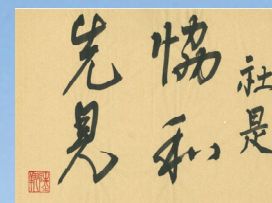 社是
協和
先見